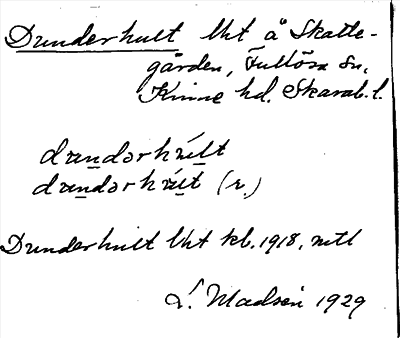 Dunderhult lht å Skatte-
gården, Fullösa sn,
Kinne hd. Skarab. l.
dundərhúlt
dundərhút (r.)
Dunderhult lht kb. 1918, mtl
L. Madsén 1929